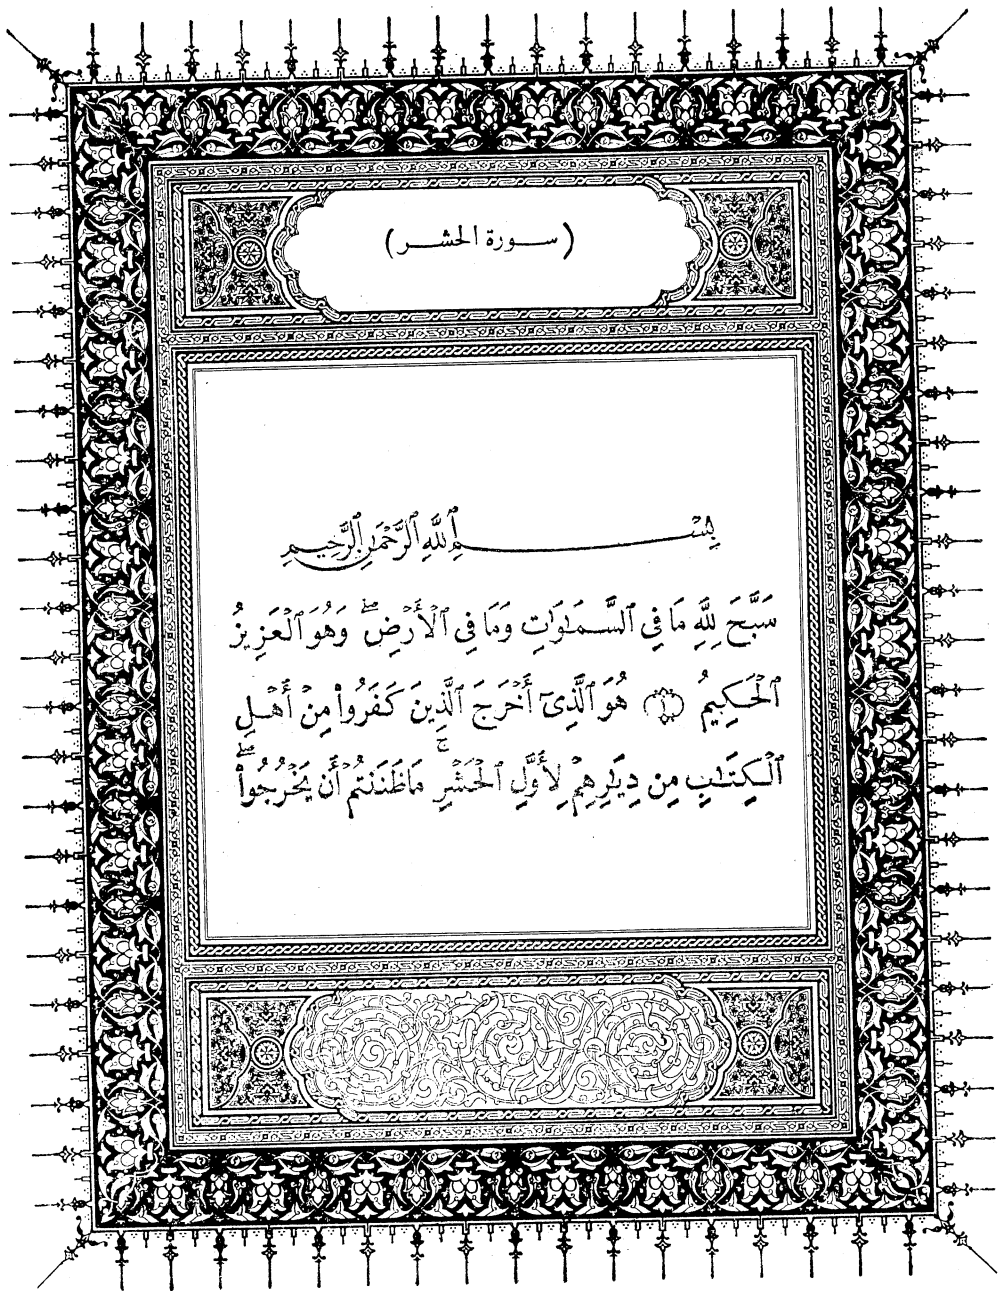 (سورة الحشر)
بِسْمِ ٱللَّهِ ٱلرَّحْمَٰنِ ٱلرَّحِيمِ
سَبَّحَ لِلَّهِ مَا فِي ٱلسَّمَٰوَٰتِ وَمَا فِي ٱلْأَرْضِ ۖ وَهُوَ ٱلْعَزِيزُ
ٱلْحَكِيمُ ١ هُوَ ٱلَّذِىٓ أَخْرَجَ ٱلَّذِينَ كَفَرُوا۟ مِنْ أَهْلِ
ٱلْكِتَٰبِ مِن دِيَٰرِهِمْ لِأَوَّلِ ٱلْحَشْرِ ۚ مَا ظَنَنتُمْ أَن يَخْرُجُوا۟ ۖ